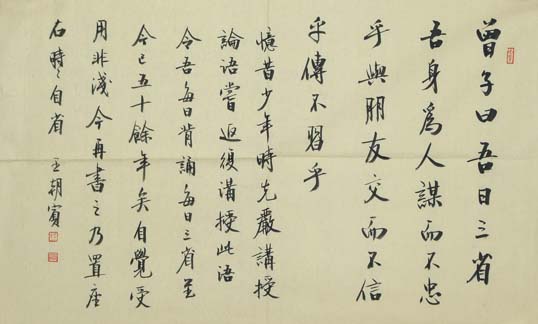 曾子曰吾日三省
吾身爲人謀而不忠
乎與朋友交而不信
乎傳不習乎
憶昔少年時先嚴講授
論語嘗返復講授此語
令吾每日背誦每日三省至
今已五十餘年矣自覺受
用非淺今再書之乃置座
右時々自省 王朝賓